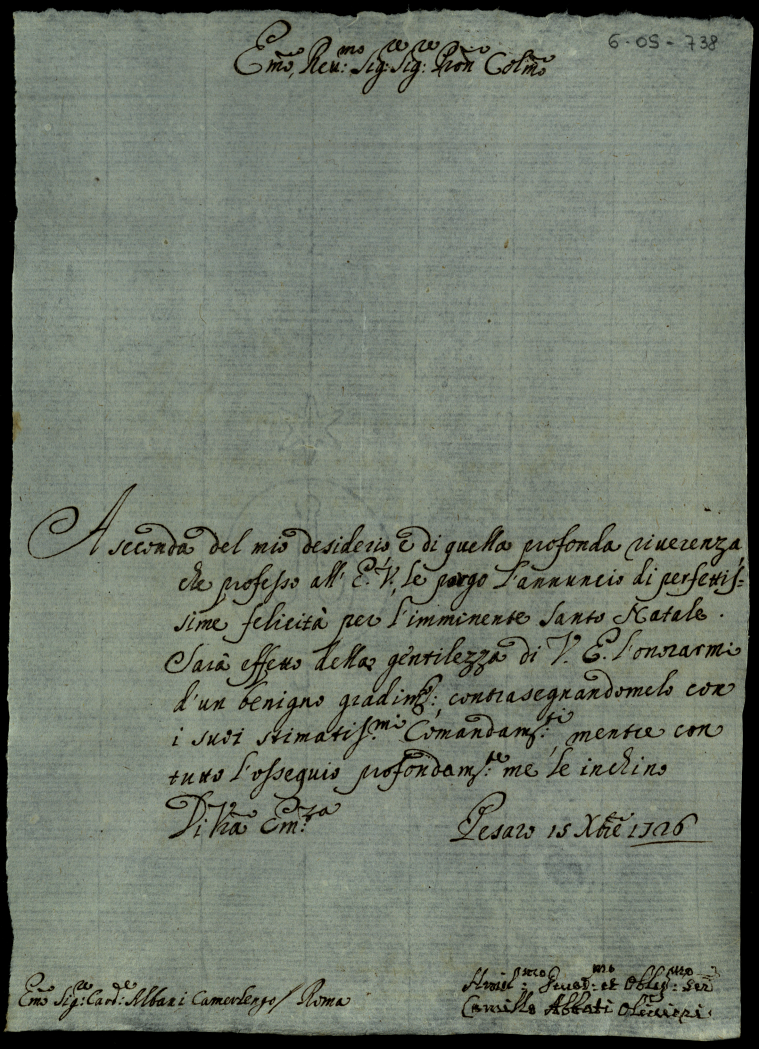 6-OS-738
Emo, Reu:mo Sig:re Sig:re Pron Colmo
A seconda del mio desiderio e di quella profonda riuerenza,
che professo all' E.V., le porgo l'annuncio di perfettis=
sime felicità per l'imminente Santo Natale.
Sarà effetto della gentilezza di V. E. l'onorarmi
d'un benigno gradim:to, contrasegnandomelo con
i suoi stimatiss:mi Comandam:ti, mentre con
tutto l'ossequio profondam:te me le inchino
Di Vra Em:za
Pesaro 15 Xbre 1726
Emo Sig:re Card:le Albani Camerlengo / Roma
Humil:mo Deuot:mo et Oblig:mo Ser
Camillo Abbati Oliuieri